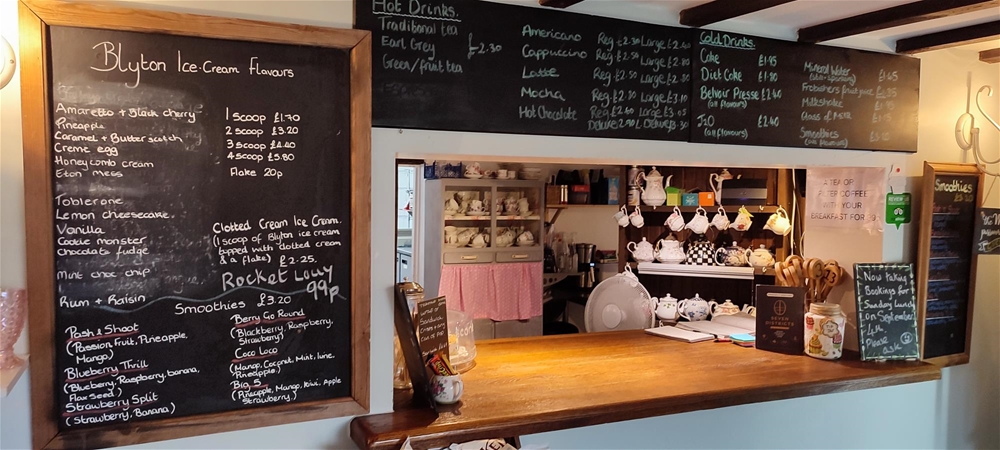 Blyton Ice-Cream Flavours
Amaretto + Black cherry
Pineapple
Caramel + Butterscotch
Creme egg
Honeycomb cream
Eton mess
Toblerone
Lemon cheesecake
Vanilla
Cookie monster
chocolate fudge
Mint choc chip
Rum + Raisin
1 Scoop £1.70
2 Scoop £3.20
3 Scoop £4.40
4 Scoop £5.80
Flake 20p
Clotted Cream Ice Cream.
(1 scoop of Blyton ice cream
topped with clotted cream
& a flake) £2.25.
Rocket Lolly
99p
Smoothies £3.20
Pash & Shoot
(Passion Fruit, Pineapple,
Mango)
Blueberry Thrill
(Blueberry, Raspberry, banana,
Flax Seed)
Strawberry Split
(Strawberry, Banana)
Berry Go Round
(Blackberry, Raspberry,
Strawberry)
Coco Loco
(Mango, Coconut, Mint, Lime,
Pineapple,)
Big 5
(Pineapple, Mango, Kiwi, Apple
Strawberry)
Hot Drinks.
Traditional tea
Earl Grey
Green/fruit tea
£2.30
Americano Reg £2.30 Large
Cappuccino Reg £2.50 Large
Latte Reg £2.50 Large
Mocha Reg £2.70 Large £3.10
Hot Chocolate Reg Large
Deluxe Deluxe
Cold Drinks.
Coke £1.95
Diet Coke £1.80
Belvoir Presse £2.60
(all flavours)
J2O £2.60
(all flavours)
Mineral Water
Milkshakes
Smoothies
(all flavours)
WITH YOUR
BREAKFAST FOR
SEVEN
DISTRICTS
Now taking
Bookings for
Sunday Lunch
on September
4th.
Please
ask
Smoothies